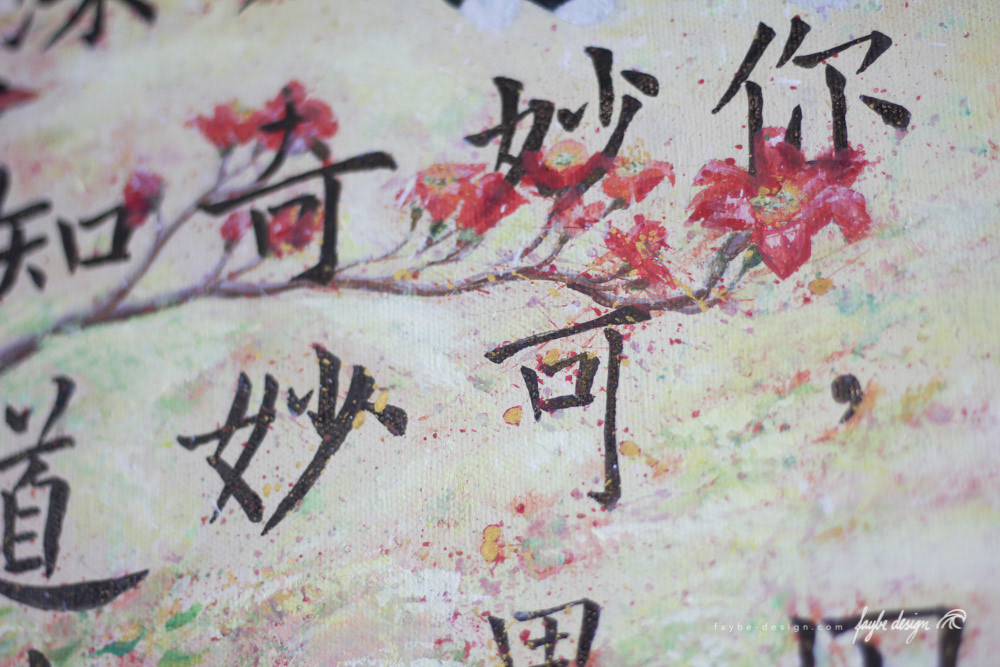 你，
妙可
奇妙
知道
faybe-design.com
faybe design